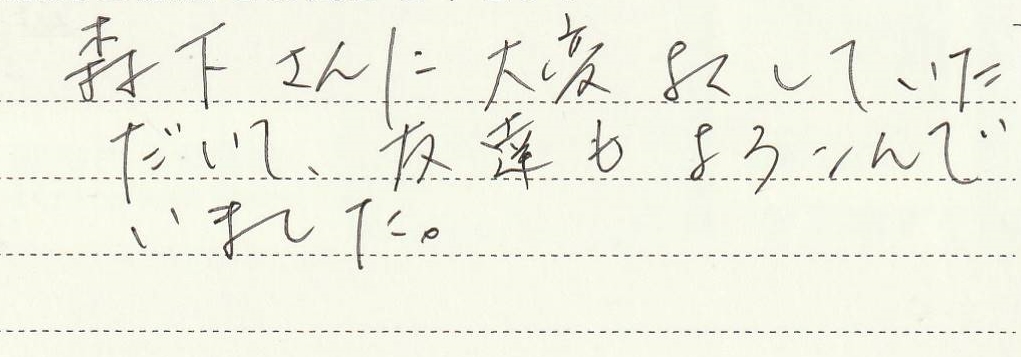 森下さんに大変よくしていた
だいて、友達もよろこんで
いました。